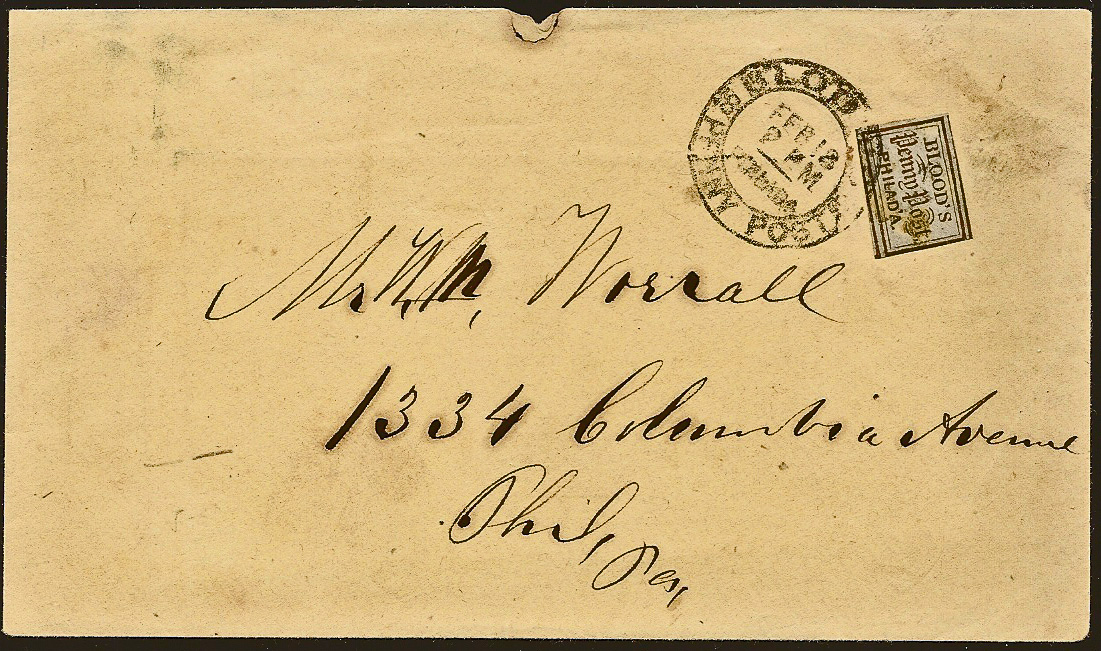 BLOOD'S PENNY POST
FEB 18
PHILADA
BLOOD'S
Penny Post
PHILAD'A.
Mr Wm, Worrall
1334 Columbia Avenue
Phil, Pa,